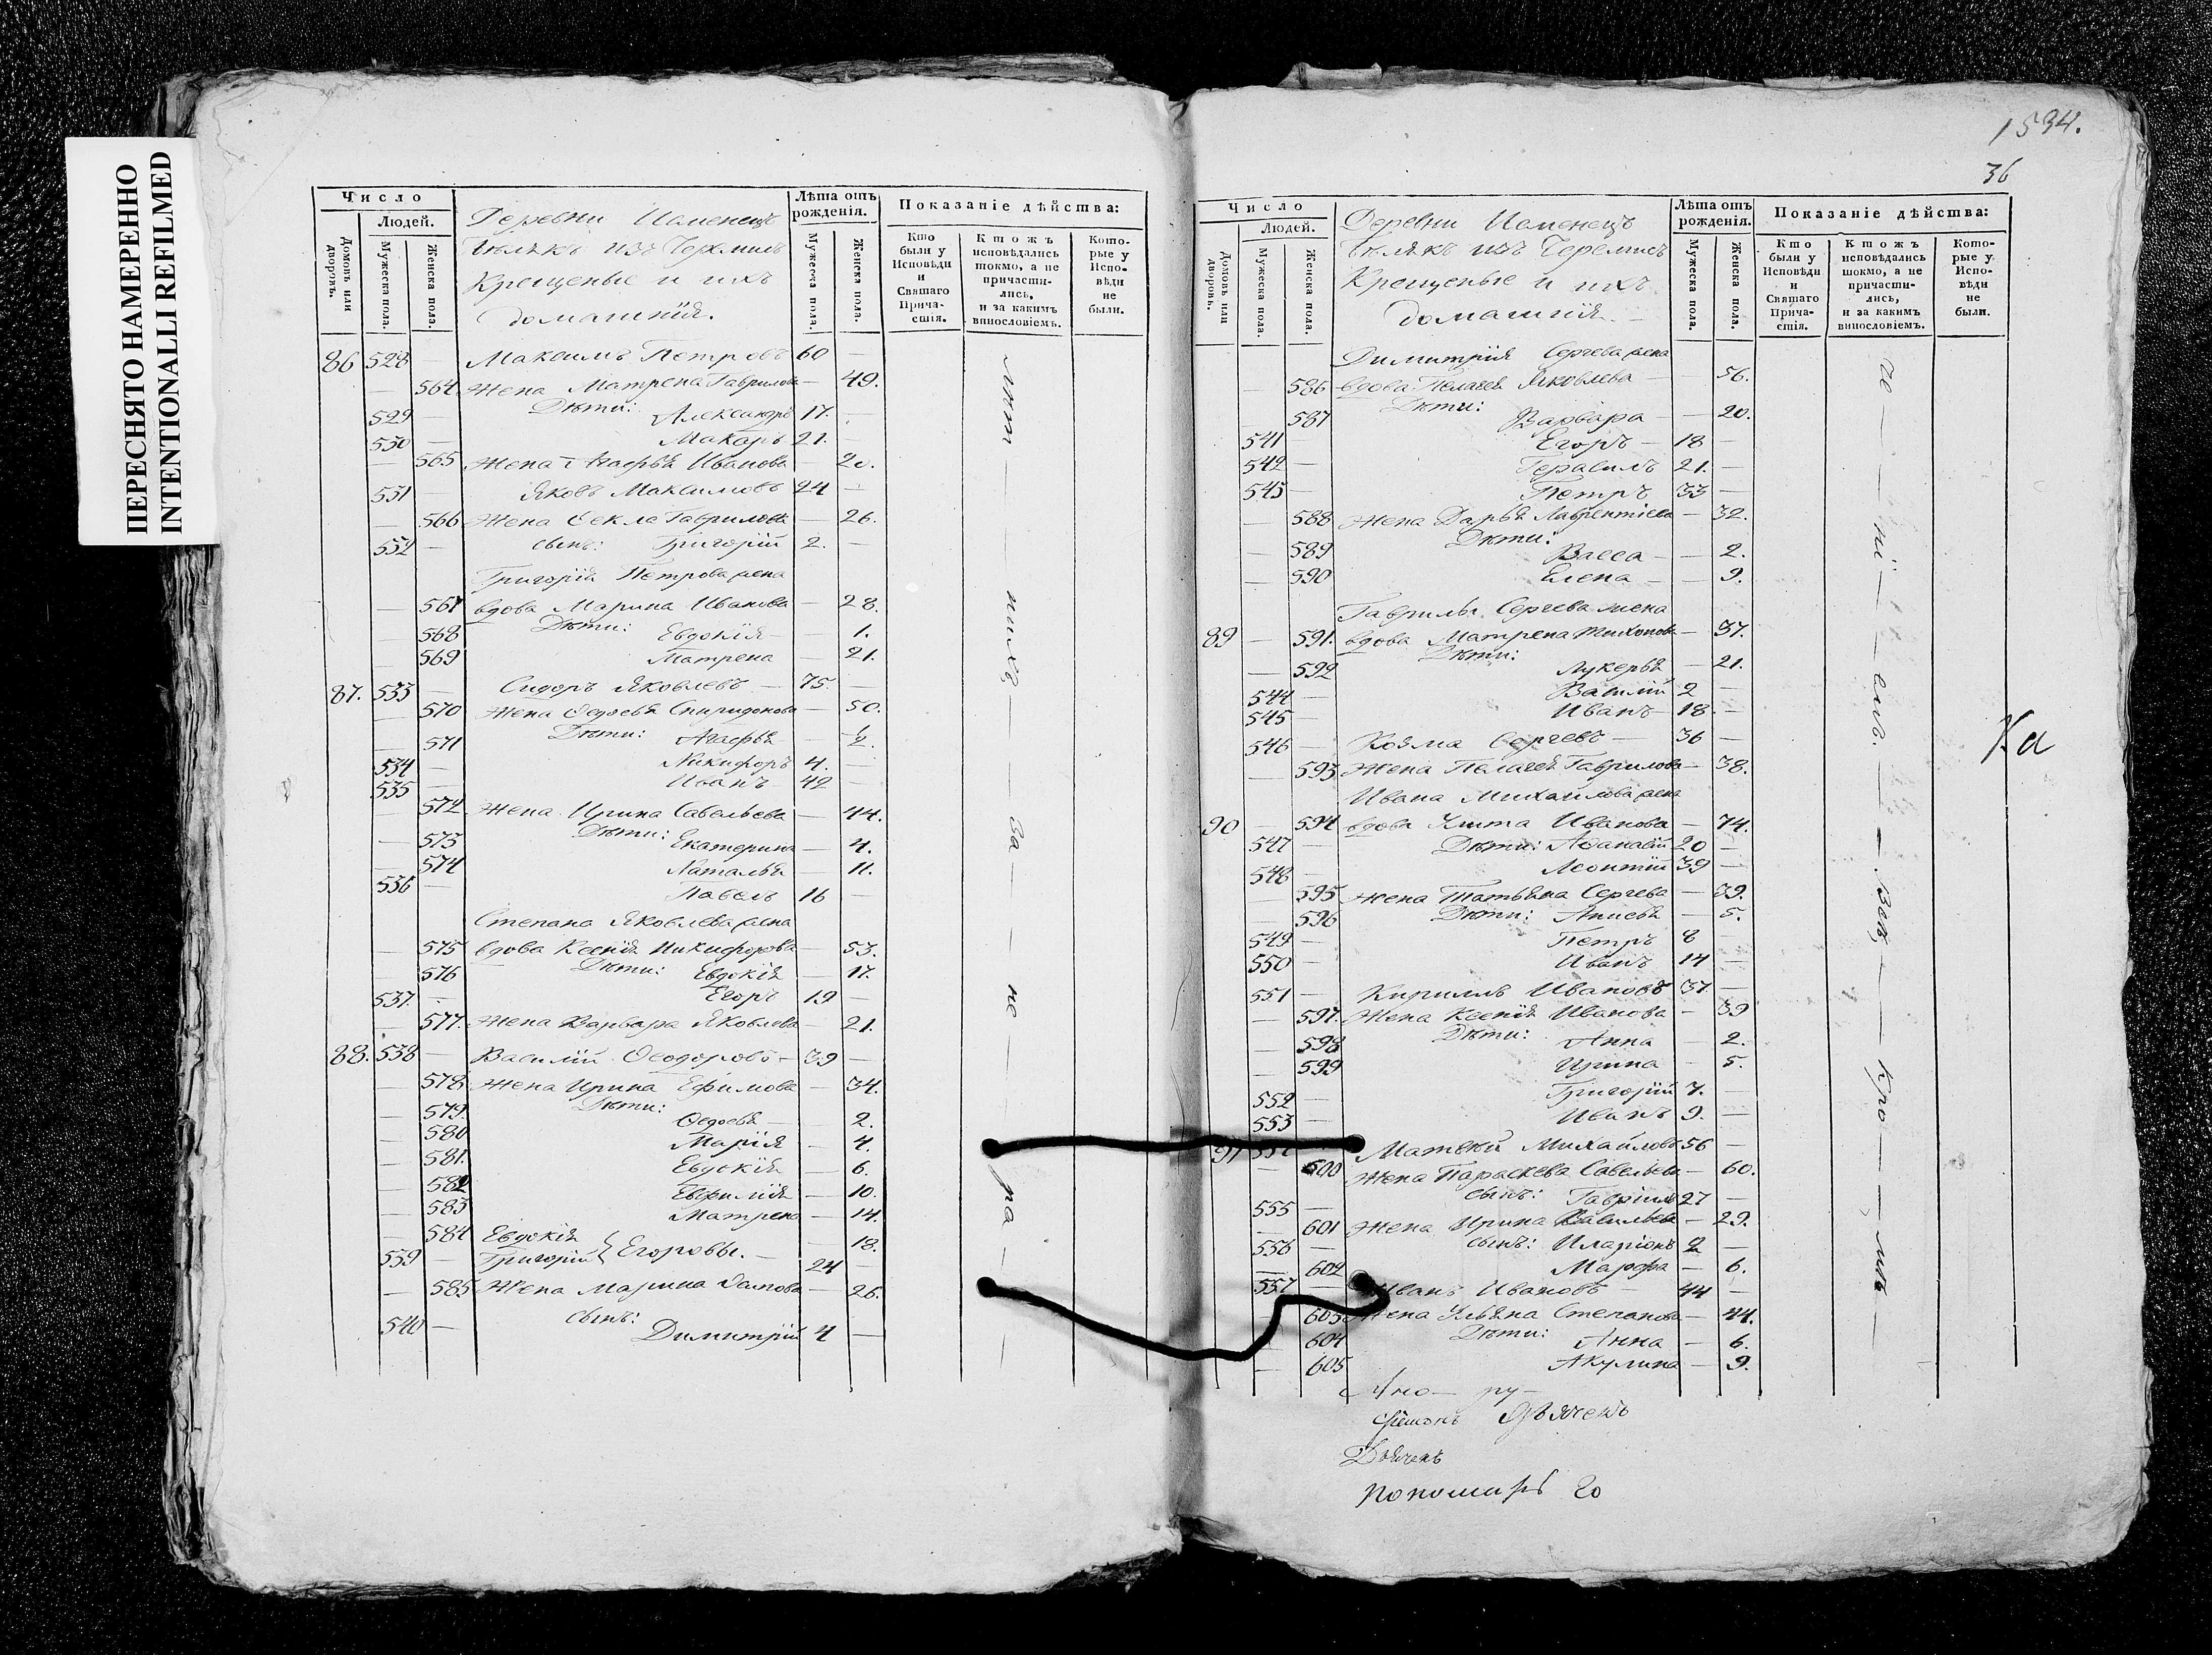 ПЕРЕСНЯТО НАМЕРЕННО
INTENTIONALLI REFILMED
Число
Людей.
Домовъ или дворовъ.
Мужеска пола.
Женска пола.
Деревни
изъ Черемисъ
Крещеные и ихъ
домашнія.
Лѣта отъ рожденія.
Мужеска пола.
Женска пола.
Показаніе дѣйства:
Кто были у Исповѣди и Святаго Прича-стія.
Ктожъ исповѣдались токмо, а не причасти-лись, и за какимъ винословіемъ.
Кото-рые у Испо-вѣди не были.
86 528 — Максимъ Петровъ 60 —
— 564 Жена Матрена Гаврилова — 49.
Дѣти:
529 Александръ 17. —
530 — Макаръ 21. —
— 565 Жена Агафья Иванова — 20.
531 — Яковъ Максимовъ 24 —
— 566 Жена Ѳекла Гаврилова — 26.
532 — сынъ: Григорій 2. —
Григорія Петрова жена
— 567 вдова Марина Иванова — 28.
Дѣти:
— 568 Евдокія — 1.
— 569 Матрена — 21.
87. 533 — Сидоръ Яковлевъ — 75. —
— 570 Жена Ѳедосья Спиридонова — 50.
— 571 Дѣти: Агафья — 2.
534 — Никифоръ 4. —
535 — Иванъ 42 —
— 572 Жена Ирина Савельева — 44.
Дѣти:
— 573 Екатерина — 4.
— 574 Наталья — 11.
536 — Павелъ 16 —
Степана Яковлева жена
— 575 вдова Ксенія Никифорова — 53.
— 576 Дѣти: Евдокія — 17.
537. — Егоръ 19 —
— 577. Жена Варвара Яковлева — 21.
88. 538 — Василій Ѳеодоровъ — 39 —
— 578 Жена Ирина Ефимова — 34.
Дѣти:
— 579. Ѳедосья — 2.
— 580 Марія — 4.
— 581. Евдокія — 6.
— 582 Евфимія — 10.
— 583 Матрена — 14.
— 584 Евдокія 18.
539 — Григорій } Егоровы. — 24 —
— 585 Жена Марина — 26.
сынъ:
540 — Димитрій 4 —
1534.
36
Число
Людей.
Домовъ или дворовъ.
Мужеска пола.
Женска пола.
Деревни
изъ Черемисъ
Крещеные и ихъ
домашнія
Лѣта отъ рожденія.
Мужеска пола.
Женска пола.
Показаніе дѣйства:
Кто были у Исповѣди и Святаго Прича-стія.
Ктожъ исповѣдались токмо, а не причасти-лись, и за какимъ винословіемъ.
Кото-рые у Испо-вѣди не были.
Димитрія Сергѣева жена
— 586 вдова Пелагея Яковлева — 56.
Дѣти:
587 Варвара — 20.
541 Егоръ — 18 —
542 — Герасимъ 21. —
543 — Петръ 33 —
— 588 Жена Дарья Лаврентіева — 32.
Дѣти:
— 589 Васса — 2.
— 590 Елена — 9.
Гаврилы Сергѣева жена
89 — 591. вдова Матрена Тихонова — 37.
Дѣти:
— 592 Лукерья — 21.
544 — Василій 2 —
545 — Иванъ 18. —
546 — Козма Сергѣевъ — 36 —
— 593 Жена Пелагея Гаврилова — 38.
Ивана Михайлова жена
90 — 594 вдова Иванова — 74.
547 — Дѣти: Аѳанасій 20 —
548 — Леонтій 39 —
— 595 Жена Татьяна Сергѣева — 39.
— 596 Дѣти: — 5.
549 — Петръ 8 —
550 — Иванъ 14 —
551 — Кириллъ Ивановъ 37. —
— 597. Жена Ксенія Иванова — 39
Дѣти:
— 598 Анна — 2.
— 599 Ирина — 5.
552 — Григорій 7. —
553 — Иванъ 9. —
91 Матвѣй Михайловъ 56 —
— 600 Жена Параскева Савельева — 60.
555 — сынъ: Гавріилъ 27 —
— 601 Жена Ирина Васильева — 29.
556 — сынъ: Иларіонъ 2 —
— 602 Марфа — 6.
557 — Иванъ Ивановъ 44 —
603 Жена Ульяна Степанова — 44.
Дѣти:
— 604 Анна — 6.
— 605 Акулина — 9.
Ка
ру-
Дьячекъ
пономарь